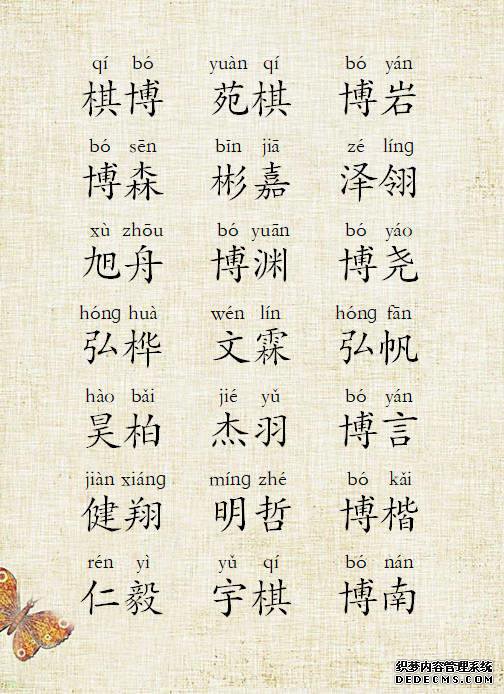 qí bó yuàn qí bó yán
棋博 苑棋 博岩
bó sēn bīn jiā zé líng
博森 彬嘉 泽翎
xù zhōu bó yuān bó yáo
旭舟 博渊 博尧
hóng huà wén lín hóng fān
弘桦 文霖 弘帆
hào bǎi jié yǔ bó yán
昊柏 杰羽 博言
jiàn xiáng míng zhé bó kǎi
健翔 明哲 博楷
rén yì yǔ qí bó nán
仁毅 宇棋 博南
织梦内容管理系统
DEDECMS.COM